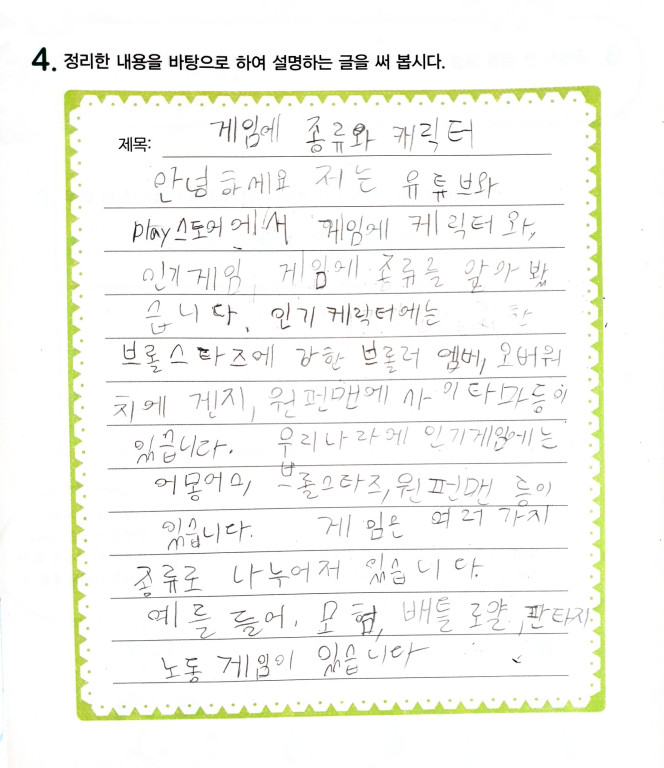 4. 정리한 내용을 바탕으로 하여 설명하는 글을 써 봅시다.
제목: 게임에 종류와 캐릭터
안녕하세요 저는 유튜브와
play스토어에서 게임에 케릭터와,
인기게임, 게임에 종류를 알아봤
습니다. 인기케릭터에는
브롤스타즈에 강한 브롤러 엠버, 오버워
치에 겐지, 원펀맨에 사이타마등이
있습니다. 우리나라에 인기게임에는
어몽어스, 브롤스타즈, 원펀맨 등이
있습니다. 게임은 여러가지
종류로 나누어져 있습니다.
예를 들어, 모험, 배틀로얄, 판타지
노동 게임이 있습니다